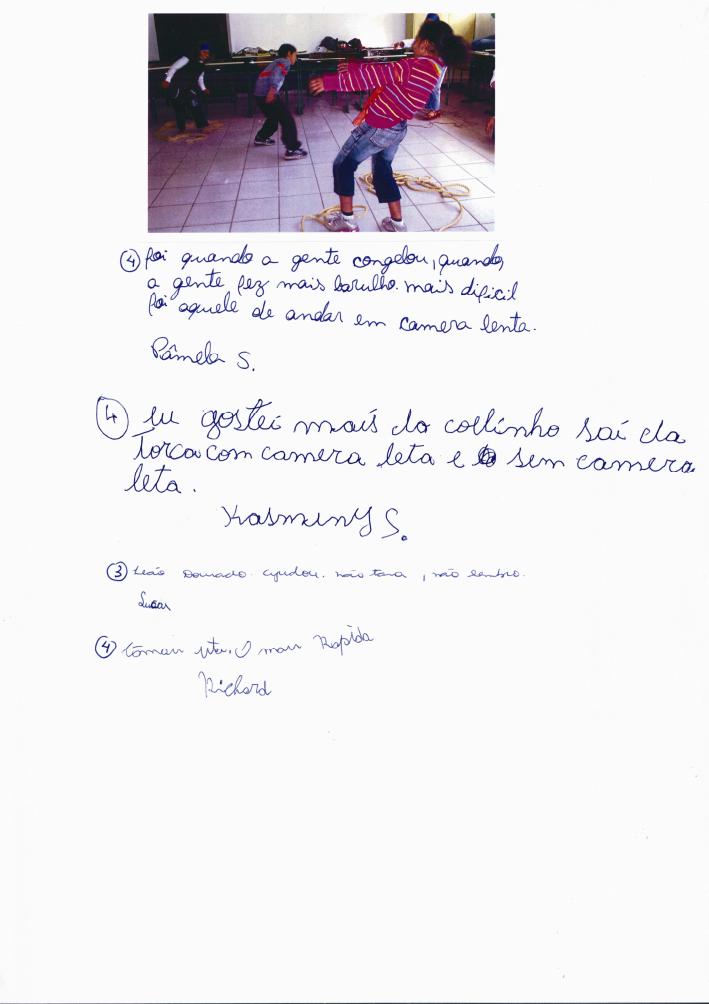 4 foi quando a gente congelou, quando,
a gente fez mais barulho. mais dificil
foi aquele de andar em camera lenta.
Pâmela S.
4 eu gostei mais do coelinho saí da
Torca com camera leta e sem camera
leta.
Kasmeny S.
3 Leão Dourado. ajudou. não tava, não lembro.
Lucas
4 mais Rapida
Richard